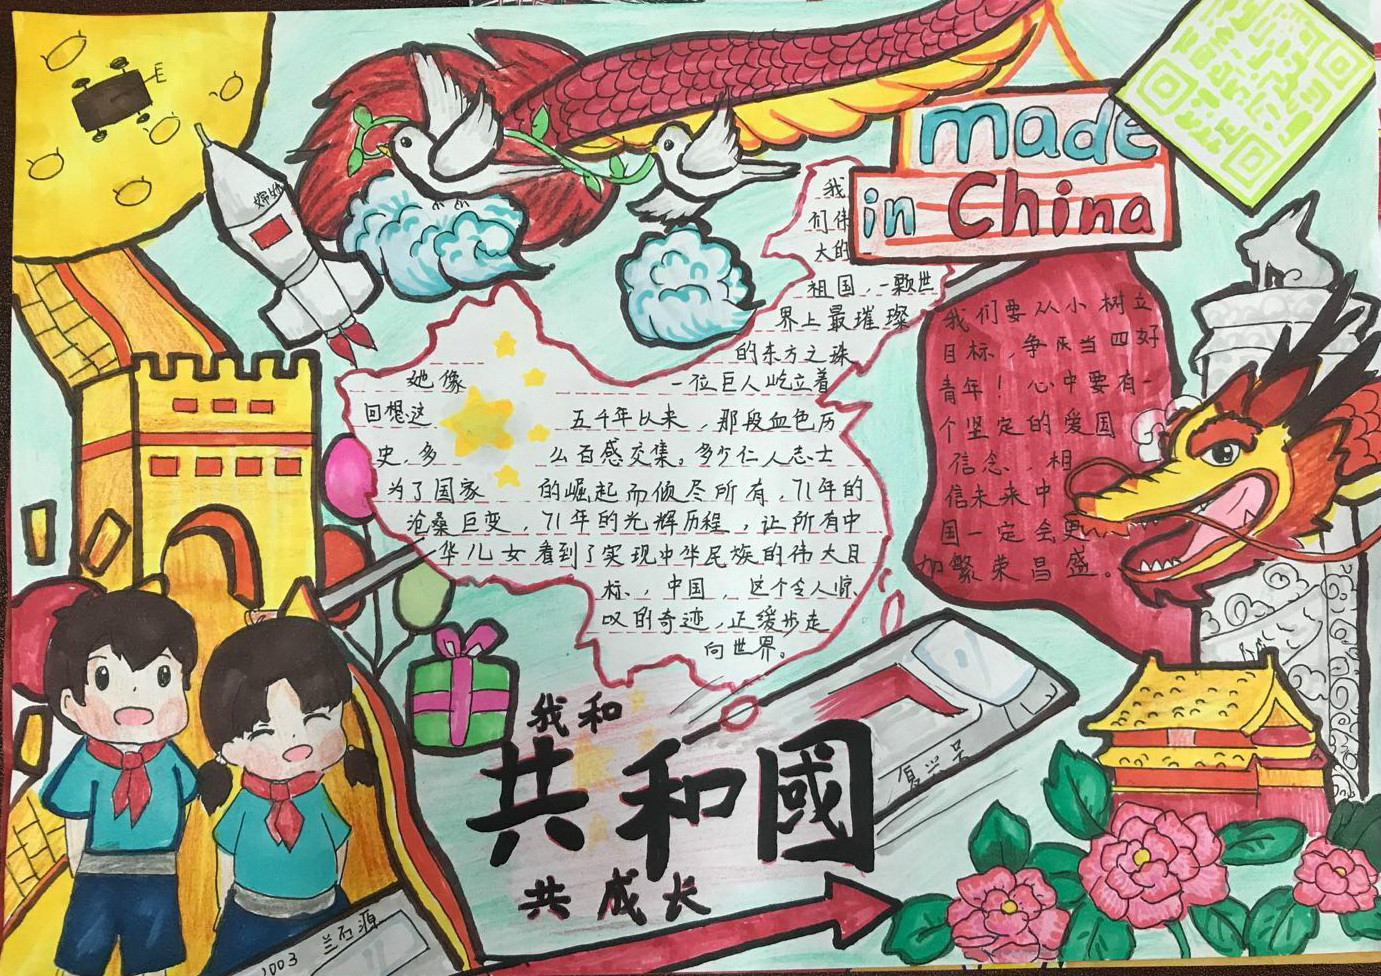 嫦娥
made
in China
我
们伟
大的
祖国，一颗世
界上最璀璨
的东方之珠
她像 一位巨人屹立着
回想这 五千年以来，那段血色历
史，多 么百感交集。多少仁人志士
为了国家 的崛起而倾尽所有，71年的
沧桑巨变，71年的光辉历程，让所有中
华儿女看到了实现中华民族的伟大目
标，中国，这个令人惊
叹的奇迹，正缓步走
向世界。
我们要从小树立
目标，争做当四好
青年！心中要有一
个坚定的爱国
信念，相
信未来中
国一定会更
加繁荣昌盛。
我和
共和國
共成长
复兴号
兰石源
1003